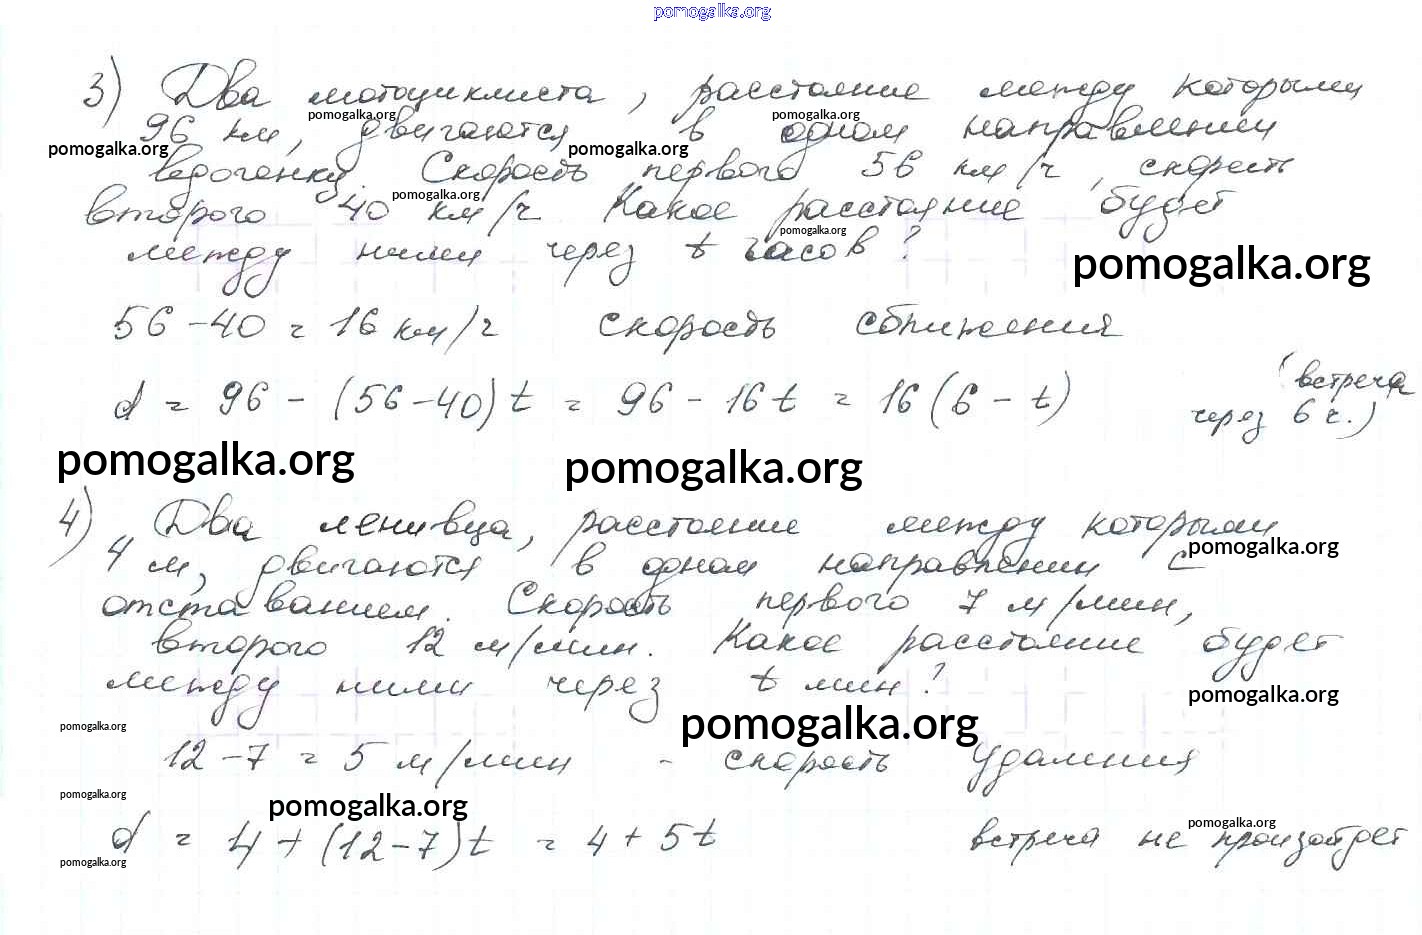 pomogalka.org
3) Два мотоциклиста, расстояние между которыми
pomogalka.org pomogalka.org
96 км, двигаются в одном направлении
pomogalka.org pomogalka.org
вдогонку. Скорость первого 56 км/ч, скорость
pomogalka.org
второго 40 км/ч. Какое расстояние будет
pomogalka.org
между ними через t часов?
pomogalka.org
56 - 40 = 16 км/ч скорость сближения
d = 96 - (56 - 40)t = 96 - 16t = 16(6 - t) (встреча
через 6 ч.)
pomogalka.org pomogalka.org
4) Два ленивца, расстояние между которыми
pomogalka.org
4 м, двигаются в одном направлении с
отставанием. Скорость первого 7 м/мин,
второго 12 м/мин. Какое расстояние будет
между ними через t мин?
pomogalka.org
pomogalka.org pomogalka.org
12 - 7 = 5 м/мин - скорость удаления
pomogalka.org pomogalka.org
pomogalka.org
d = 4 + (12 - 7)t = 4 + 5t встреча не произойдет
pomogalka.org